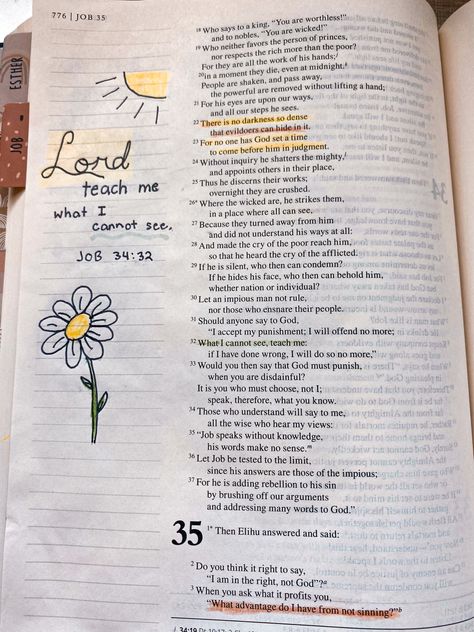 776 | JOB 35
ESTHER
JOB
Lord
teach me
what I
cannot see.
JOB 34:32
18 Who says to a king, "You are worthless!"
and to nobles, "You are wicked!"
19 Who neither favors the person of princes,
nor respects the rich more than the poor?
For they are all the work of his hands;
20 in a moment they die, even at midnight.
People are shaken, and pass away,
the powerful are removed without lifting a hand;
21 For his eyes are upon our ways,
and all our steps he sees.
22 There is no darkness so dense
that evildoers can hide in it.
23 For no one has God set a time
to come before him in judgment.
24 Without inquiry he shatters the mighty,
and appoints others in their place,
25 Thus he discerns their works;
overnight they are crushed.
26 Where the wicked are, he strikes them,
in a place where all can see,
27 Because they turned away from him
and did not understand his ways at all:
28 And made the cry of the poor reach him,
so that he heard the cry of the afflicted.
29 If he is silent, who then can condemn?
If he hides his face, who then can behold him,
whether nation or individual?
30 Let an impious man not rule,
nor those who ensnare their people.
31 Should anyone say to God,
"I accept my punishment; I will offend no more;
32 What I cannot see, teach me:
if I have done wrong, I will do so no more,"
33 Would you then say that God must punish,
when you are disdainful?
It is you who must choose, not I;
speak, therefore, what you know.
34 Those who understand will say to me,
all the wise who hear my views:
35 "Job speaks without knowledge,
his words make no sense.
36 Let Job be tested to the limit,
since his answers are those of the impious;
37 For he is adding rebellion to his sin
by brushing off our arguments
and addressing many words to God."
35 1* Then Elihu answered and said:
2 Do you think it right to say,
"I am in the right, not God"?a
3 When you ask what it profits you,
"What advantage do I have from not sinning?"b